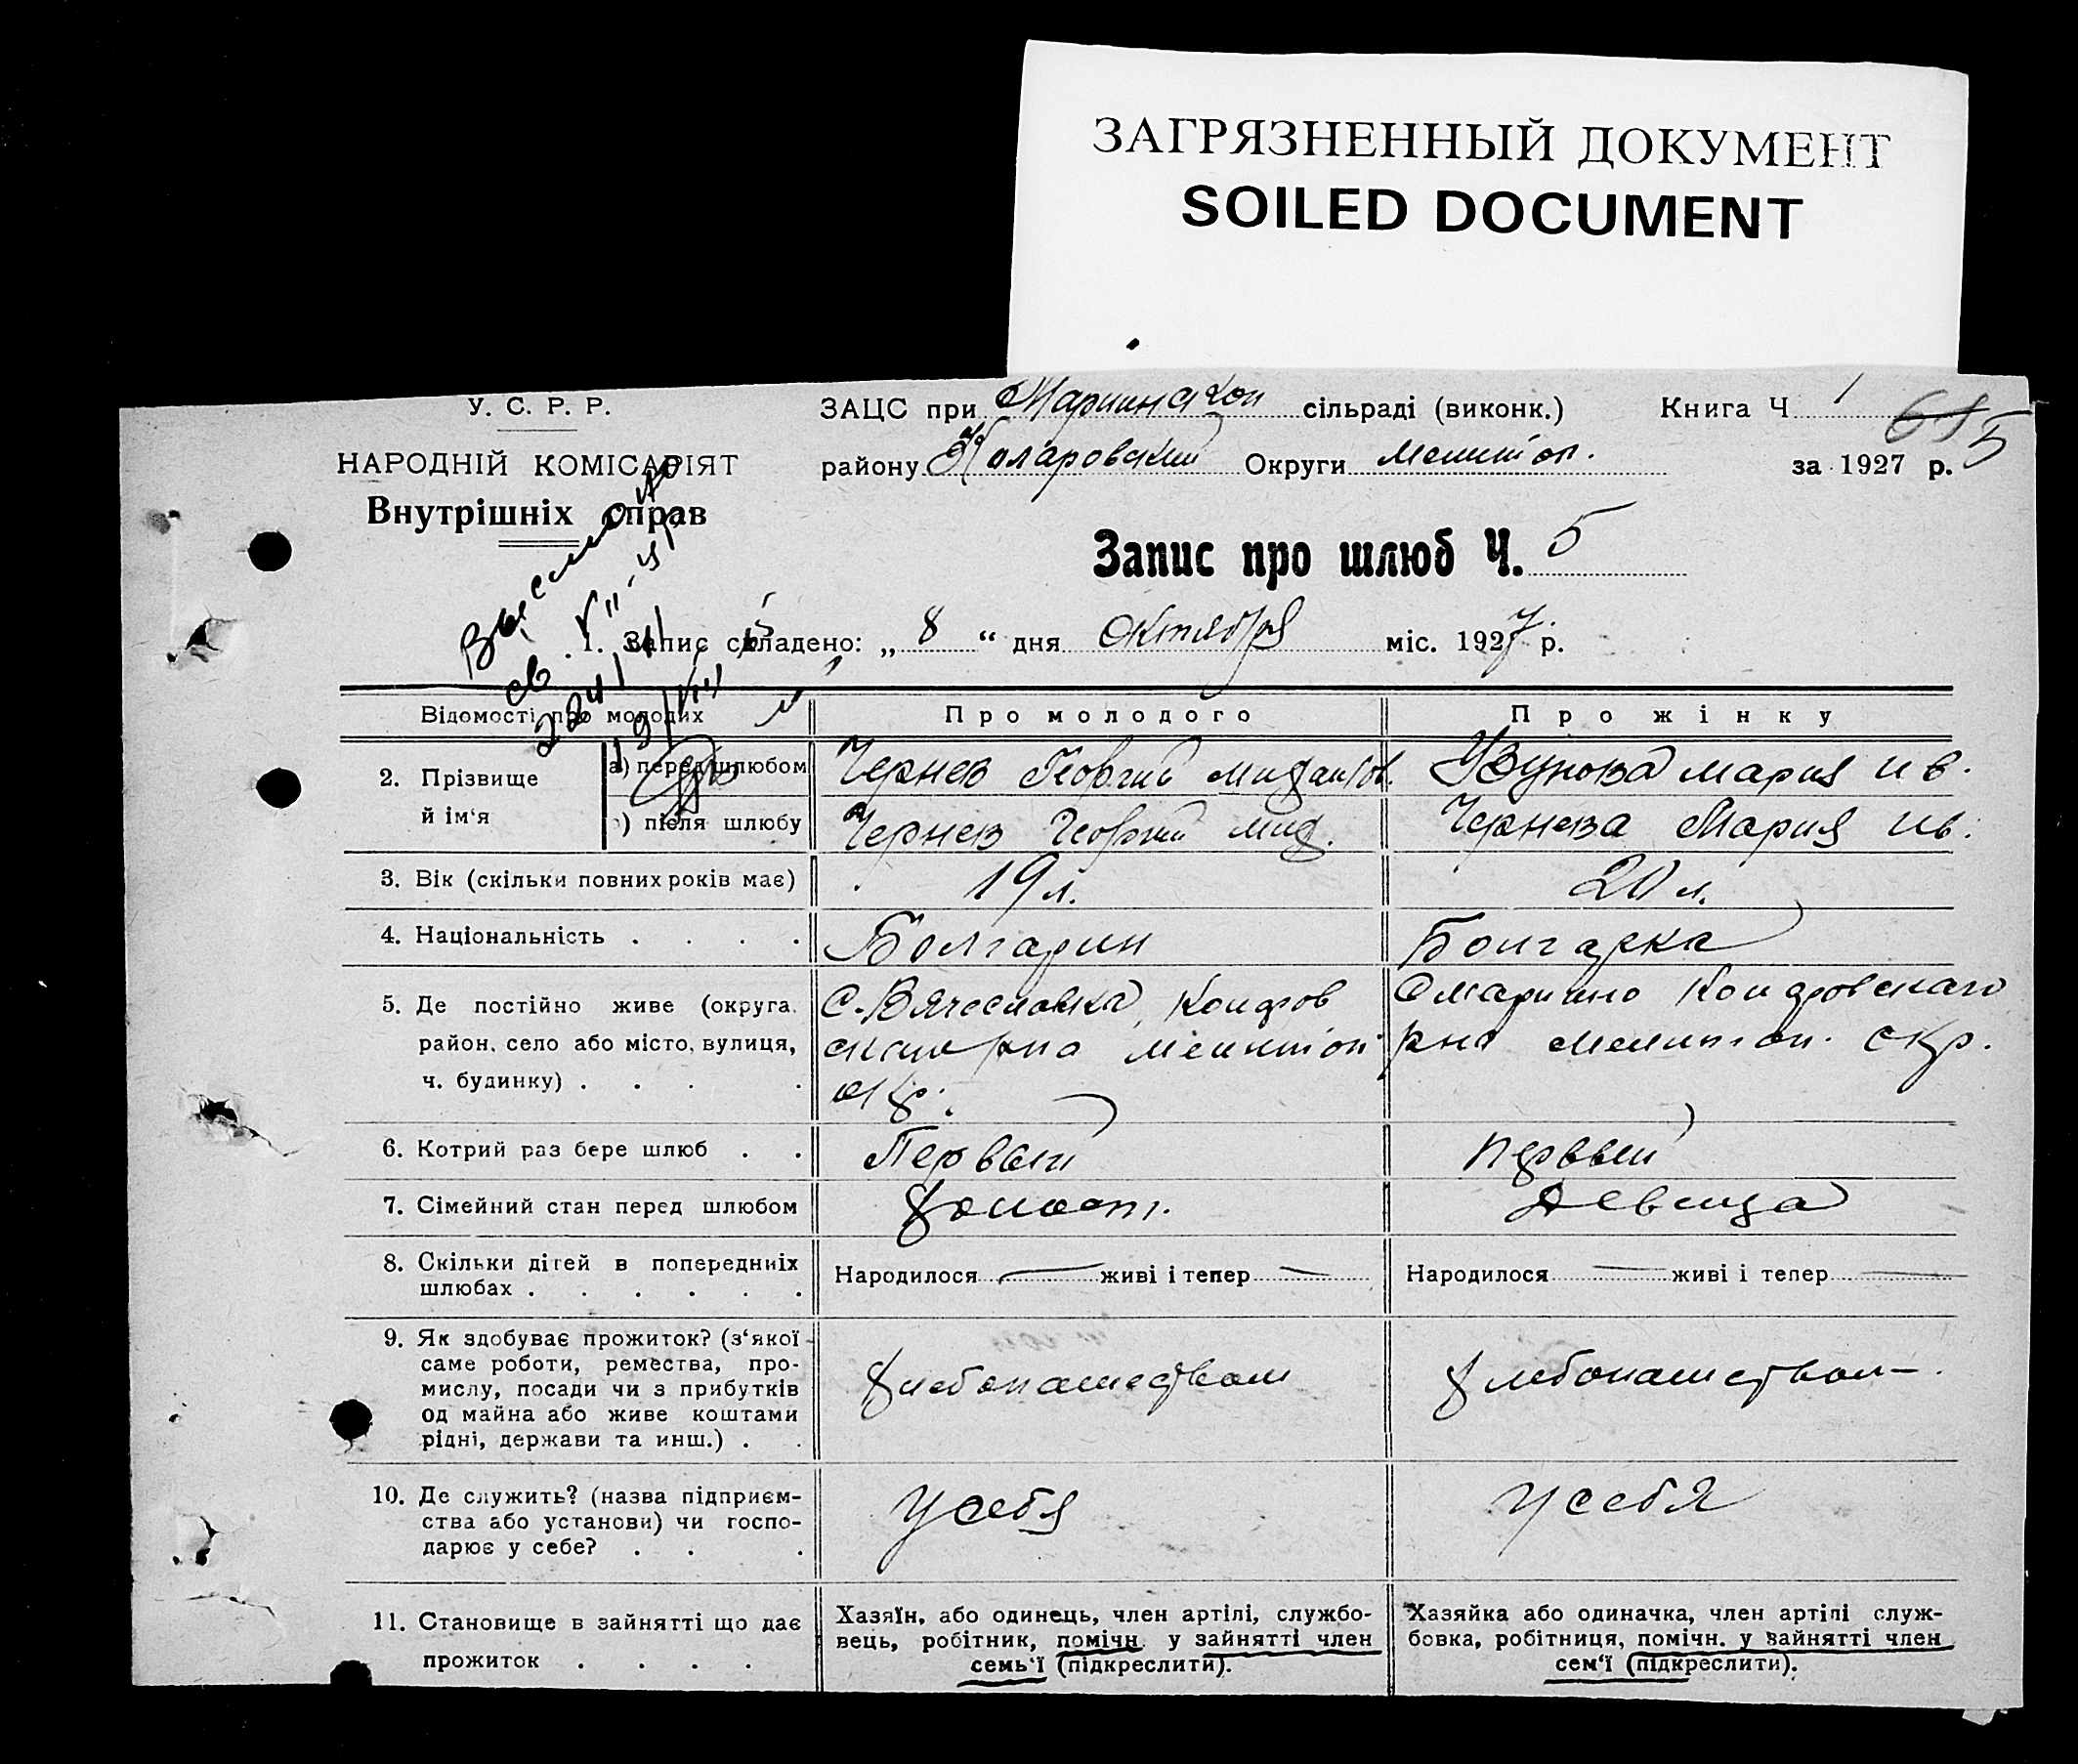 ЗАГРЯЗНЕННЫЙ ДОКУМЕНТ
SOILED DOCUMENT
У. С. Р. Р.
НАРОДНІЙ КОМІСАРІЯТ
Внутрішніх справ
ЗАЦС при сільраді (виконк.) Книга Ч 1
району Коларовский Округи Мелитоп. за 1927 р. 5
Запис про шлюб Ч. 5
1. Запис складено: „ 8 “ дня Октября міс. 1927 р.
Відомості про молодих
Про молодого
Про жінку
2. Прізвище й ім‘я
а) перед шлюбом
Чернев Георгий Михайлов.
Узунова Мария Ив.
б) після шлюбу
Чернев Георгий Мих.
Чернева Мария Ив.
3. Вік (скільки повних років має)
19 л.
20 л.
4. Національність . . . .
Болгарин
Болгарка
5. Де постійно живе (округа,
район, село або місто, вулиця,
ч. будинку) . . . .
С. Вячеславка,
Мелитоп
окр.
Мелитоп. окр.
6. Котрий раз бере шлюб . .
Первый
Первый
7. Сімейний стан перед шлюбом
Холост.
Девица
8. Скільки дітей в попередниіх
шлюбах . . . . . .
Народилося — живі і тепер —
Народилося — живі і тепер —
9. Як здобуває прожиток? (з‘якої
саме роботи, ремества, про-
мислу, посади чи з прибутків
од майна або живе коштами
рідні, держави та инш.) . .
Хлебопашеством
Хлебопашеством
10. Де служить? (назва підприєм-
ства або установи) чи госпо-
дарює у себе? . . .
У себя
У себя
11. Становище в зайнятті що дає
прожиток . . . .
Хазяїн, або одинець, член артілі, службо-
вець, робітник, помічн. у зайнятті член
семь‘ї (підкреслити).
Хазяйка або одиначка, член артілі служ-
бовка, робітниця, помічн. у зайнятті член
сем‘ї (підкреслити).